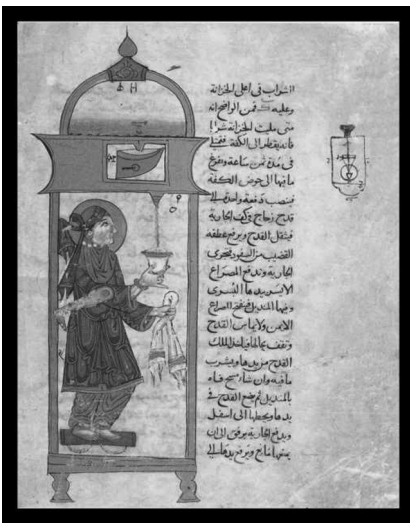 الشراب في اعلى الخزانة
وعليه فمن الواضح انه
متى مليت الخزانة شرابا
فانه يقطر الى الكفة
في مدة ثمن ساعة وتفرغ
ما فيها الى حوض الكفة
فينصب دفعة واحدة الى
قدح زجاج في كف الجارية
فيثقل القدح ويرفع عطفه
القضيب من السفود
الجارية وتدفع المصراع
الايسر بيدها اليسرى
وفيها المنديل المصراع
الايمن ولا يماس القدح
وتقف الملك
القدح من يدها ويشرب
ما فيه وان شاء مسح فاه
بالمنديل ثم يضع القدح في
يدها ويحطها الى اسفل
ويدفع الجارية برفق الى ان
ويرفع يدها الى